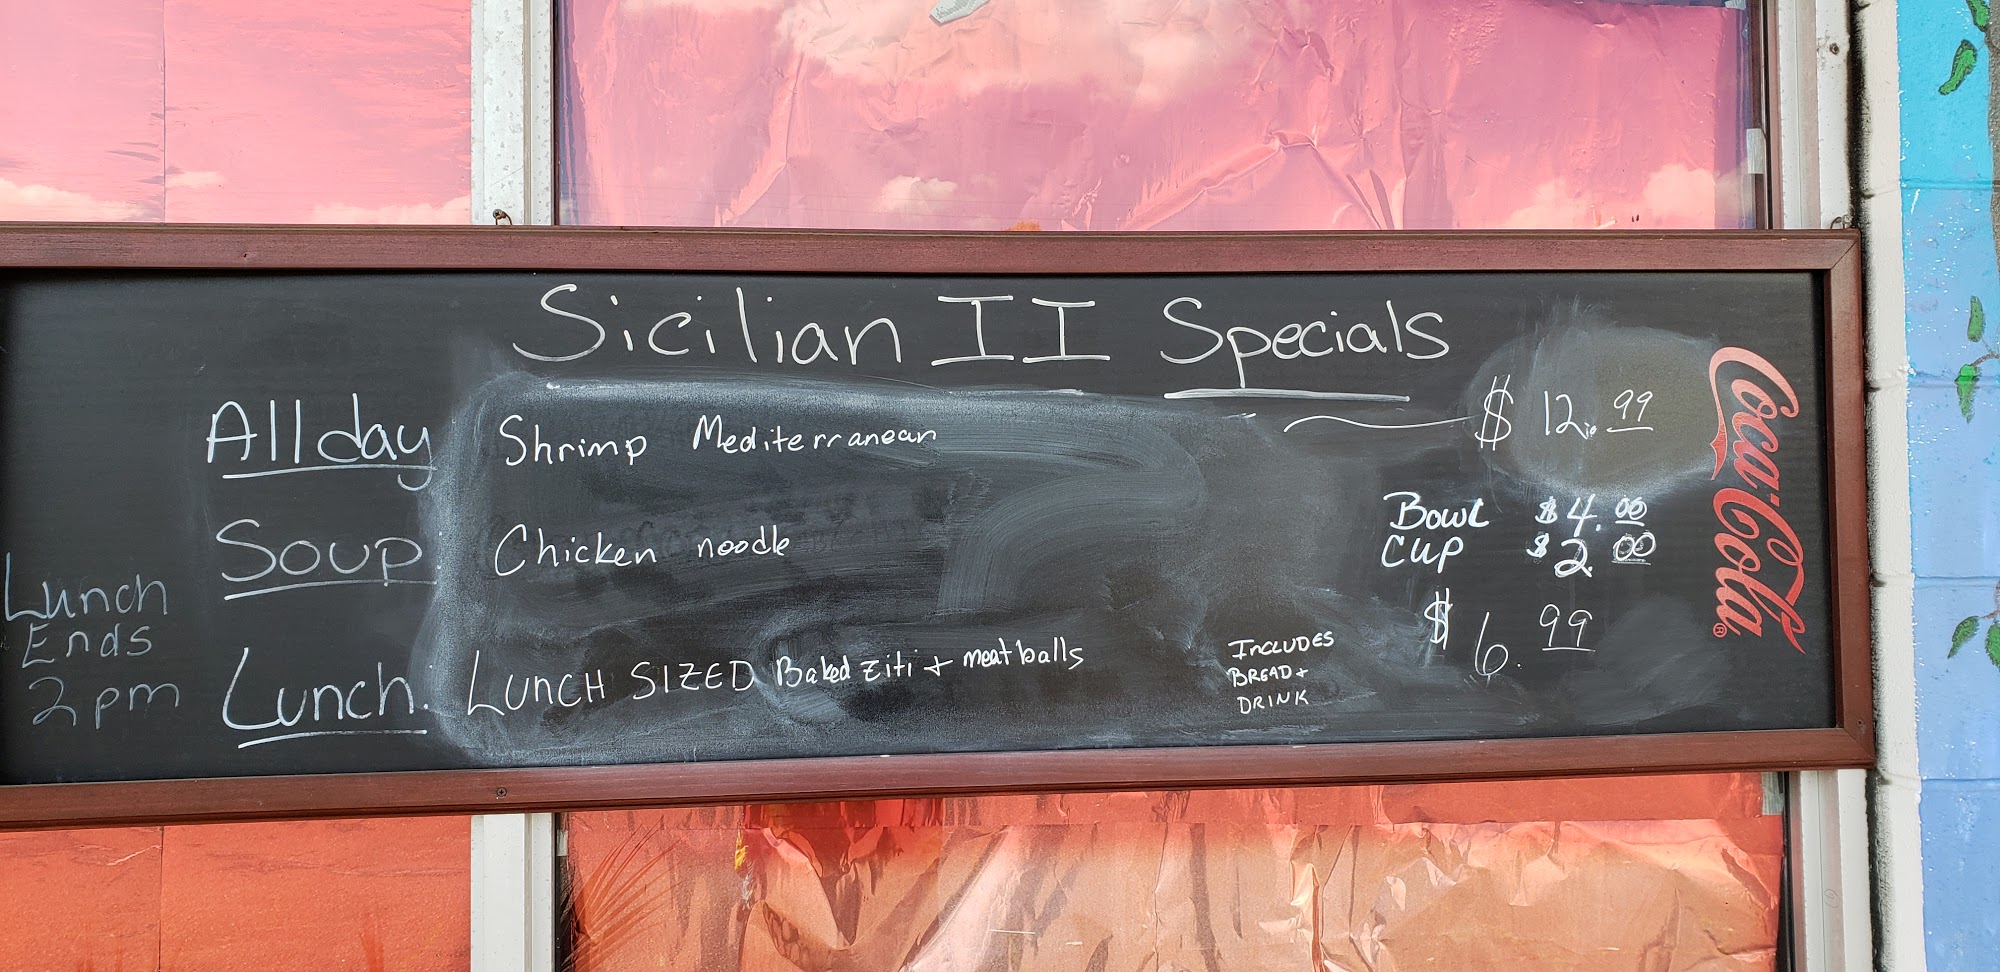 Sicilian II Specials
All day: Shrimp Mediterranean $12.99
Soup: Chicken noodle Bowl $4.00
Cup $2.00
Lunch: Lunch Sized Baked ziti + meatballs Includes Bread + Drink $6.99
Lunch
Ends
2pm
Coca-Cola®